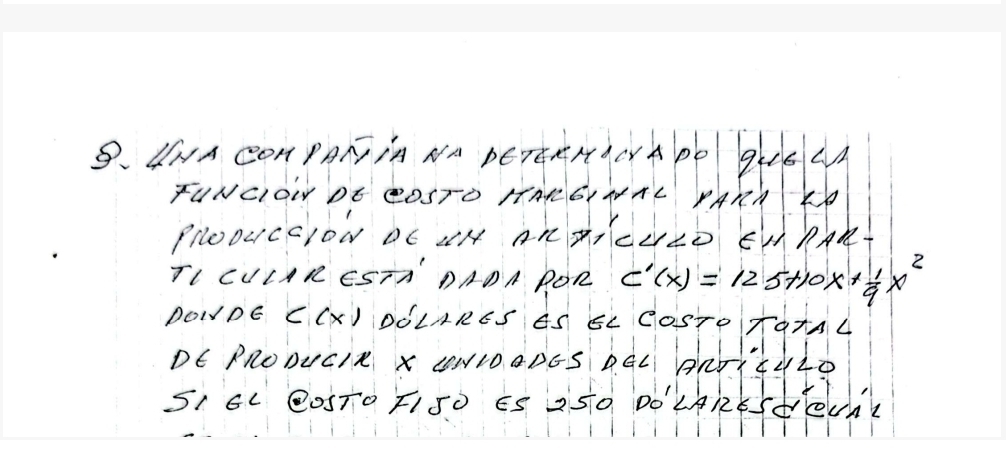 8. UNA COMPAÑIA HA DETERMINADO QUE LA
FUNCIÓN DE COSTO MARGINAL PARA LA
PRODUCCIÓN DE UN ARTÍCULO EN PAR-
TICULAR ESTÁ DADA POR C'(x) = 125+10x+1/9 x²
DONDE C(x) DÓLARES ES EL COSTO TOTAL
DE PRODUCIR X UNIDADES DEL ARTÍCULO
SI EL COSTO FIJO ES 250 DÓLARES ¿CUÁL